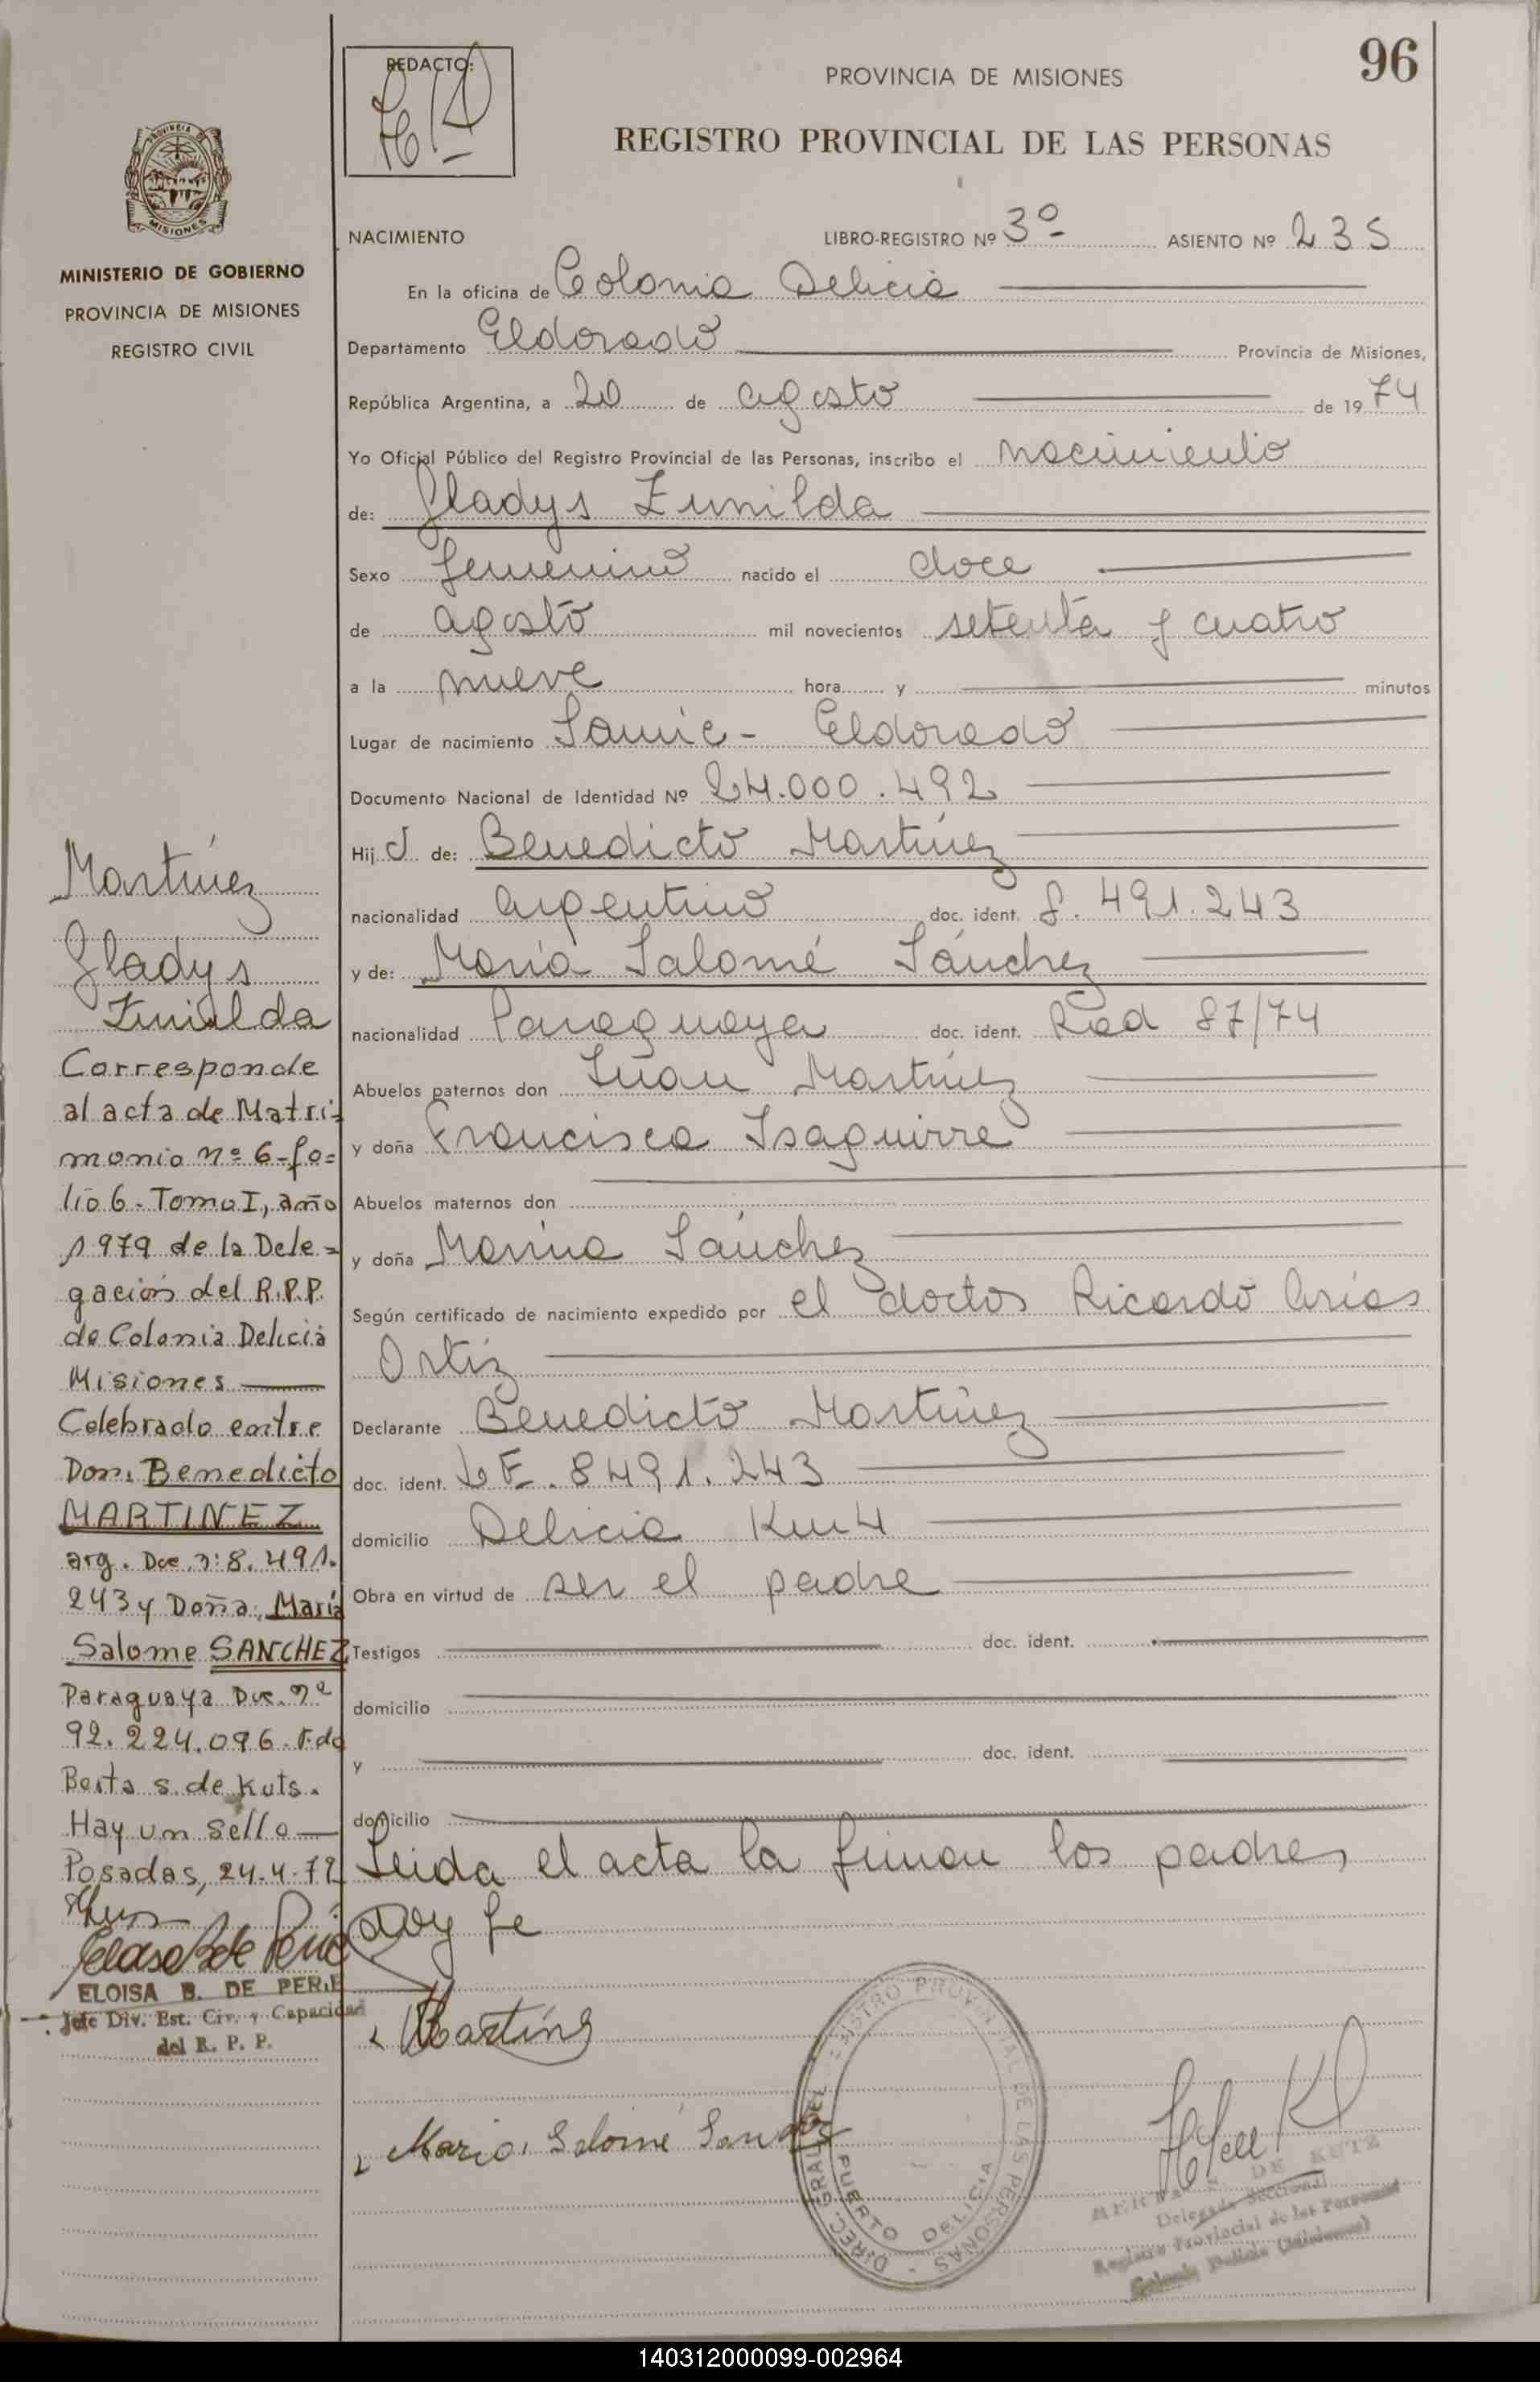 96
REDACTO:
PROVINCIA DE MISIONES
REGISTRO PROVINCIAL DE LAS PERSONAS
PROVINCIA DE
MISIONES
MINISTERIO DE GOBIERNO
PROVINCIA DE MISIONES
REGISTRO CIVIL
NACIMIENTO LIBRO-REGISTRO Nº 3º ASIENTO Nº 235
En la oficina de Colonia Delicia
Departamento Eldorado Provincia de Misiones,
República Argentina, a 20 de agosto de 1974
Yo Oficial Público del Registro Provincial de las Personas, inscribo el nacimiento
de: Gladys Zunilda
Sexo femenino nacido el doce
de agosto mil novecientos setenta y cuatro
a la nueve hora y minutos
Lugar de nacimiento Samic - Eldorado
Documento Nacional de Identidad Nº 24.000.492
Hij de: Benedicto Martínez
nacionalidad argentino doc. ident. 8.491.243
y de: María Salomé Sánchez
nacionalidad Paraguaya doc. ident. Rad 87/74
Abuelos paternos don Juan Martínez
y doña Francisca Isaguirre
Abuelos maternos don
y doña Marina Sánchez
Según certificado de nacimiento expedido por el doctor Ricardo Arias
Ortíz
Declarante Benedicto Martínez
doc. ident. L E. 8491.243
domicilio Delicia Km 4
Obra en virtud de ser el padre
Testigos doc. ident.
domicilio
y doc. ident.
domicilio
Leida el acta la firman los padres
doy fe
Martínez
Gladys
Zunilda
Corresponde
al acta de Matri=
monio nº 6-fo=
lio 6. Tomo I, año
1979 de la Dele=
gación del R.P.P.
de Colonia Delicia
Misiones
Celebrado entre
Don: Benedicto
MARTINEZ
arg. Doc. n: 8.491.
243 y Doña. María
Salome SANCHEZ
Paraguaya Doc. nº
92.224.096. Fdo
Berta s. de Kuts.
Hay un Sello
Posadas, 24.4.79
ELOISA B. DE PERIE
Jefe Div. Est. Civ. y Capacidad
del R. P. P.
Martínez
Maria Salomé Sanchez
DIREC. GRAL. DEL REGISTRO PROVINCIAL DE LAS PERSONAS
PUERTO DELICIA
BERTA S. DE KUTZ
Delegada Seccional
Registro Provincial de las Personas
Colonia Delicia (Misiones)
140312000099-002964